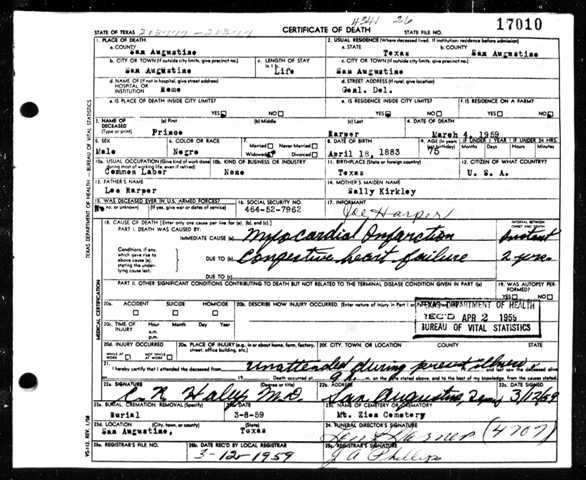 4241 26
STATE OF TEXAS
CERTIFICATE OF DEATH
STATE FILE NO.
17010
1. PLACE OF DEATH
a. COUNTY
San Augustine
2. USUAL RESIDENCE (Where deceased lived. If institution: residence before admission)
a. STATE
Texas
b. COUNTY
San Augustine
b. CITY OR TOWN (If outside city limits, give precinct no.)
San Augustine
c. LENGTH OF STAY
Life
c. CITY OR TOWN (If outside city limits, give precinct no.)
San Augustine
d. NAME OF (If not in hospital, give street address)
HOSPITAL OR
INSTITUTION
Home
d. STREET ADDRESS (If rural, give location)
Genl. Del.
e. IS PLACE OF DEATH INSIDE CITY LIMITS?
YES NO
e. IS RESIDENCE INSIDE CITY LIMITS?
YES NO
f. IS RESIDENCE ON A FARM?
YES NO
3. NAME OF
DECEASED
(Type or print)
(a) First
Prince
(b) Middle
(c) Last
Harper
4. DATE OF DEATH
March 4, 1959
5. SEX
Male
6. COLOR OR RACE
Negro
7.
Married Never Married
Widowed Divorced
8. DATE OF BIRTH
April 18, 1883
9. AGE
75
IF UNDER 1 YEAR
Months Days
IF UNDER 24 HRS.
Hours Minutes
10a. USUAL OCCUPATION (Give kind of work done
Common Labor
10b. KIND OF BUSINESS OR INDUSTRY
None
11. BIRTHPLACE (State or foreign country)
Texas
12. CITIZEN OF WHAT COUNTRY?
U. S. A.
13. FATHER'S NAME
Lee Harper
14. MOTHER'S MAIDEN NAME
Sally Kirkley
15. WAS DECEASED EVER IN U.S. ARMED FORCES?
(If yes, give war or dates of service)
No
16. SOCIAL SECURITY NO.
464-52-7962
17. INFORMANT
Joe Harper
18. CAUSE OF DEATH (Enter only one cause per line for (a), (b), and (c).)
PART I. DEATH WAS CAUSED BY:
IMMEDIATE CAUSE (a)
Myocardial Infarction
INTERVAL BETWEEN
ONSET AND DEATH
instant
Conditions, if any,
which gave rise to
above cause (a),
stating the under-
lying cause last.
DUE TO (b)
Congestive heart failure
2 yrs.
DUE TO (c)
PART II. OTHER SIGNIFICANT CONDITIONS CONTRIBUTING TO DEATH BUT NOT RELATED TO THE TERMINAL DISEASE CONDITION GIVEN IN PART I(a)
19. WAS AUTOPSY PER-
FORMED?
YES NO
20a.
ACCIDENT SUICIDE HOMICIDE
20b. DESCRIBE HOW INJURY OCCURRED. (Enter nature of injury in Part I
TEXAS DEPARTMENT OF HEALTH
REC'D APR 2 1959
BUREAU OF VITAL STATISTICS
20c. TIME OF
INJURY
Hour Month Day Year
a.m.
p.m.
20d. INJURY OCCURRED
WHILE AT
WORK
NOT WHILE
AT WORK
20e. PLACE OF INJURY (e.g., in or about home, farm, factory,
street, office building, etc.)
20f. CITY, TOWN, OR LOCATION
COUNTY
STATE
21. I hereby certify that I attended the deceased from
unattended during present illness
Death occurred at
m. on the date stated above, and to the best of my knowledge, from the causes stated.
22a. SIGNATURE
(Degree or title)
C. N. Haley M.D.
22b. ADDRESS
San Augustine, Texas
22c. DATE SIGNED
23a. BURIAL, CREMATION, REMOVAL (Specify)
Burial
23b. DATE
3-8-59
23c. NAME OF CEMETERY OR CREMATORY
Mt. Zion Cemetery
23d. LOCATION (City, town, or county) (State)
San Augustine, Texas
24. FUNERAL DIRECTOR'S SIGNATURE
(4707)
25a. REGISTRAR'S FILE NO.
25b. DATE REC'D BY LOCAL REGISTRAR
3-12-1959
25c. REGISTRAR'S SIGNATURE
J A Phillips
TEXAS DEPARTMENT OF HEALTH — BUREAU OF VITAL STATISTICS
MEDICAL CERTIFICATION